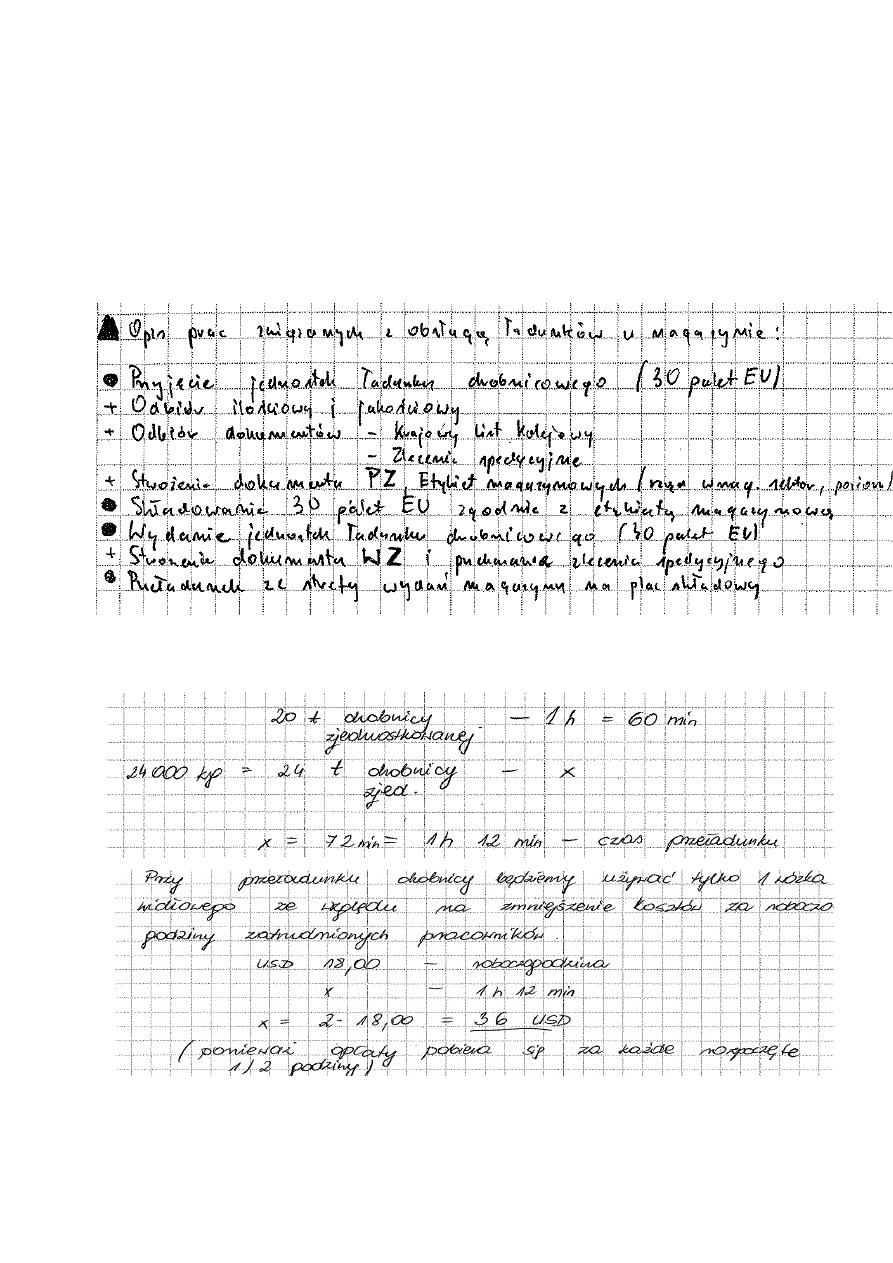 Opis prac związanych z obsługą ładunków w magazynie:
Przyjęcie jednostek ładunku drobnicowego (30 palet EU)
+ Odbiór ilościowy i jakościowy
+ Odbiór dokumentów - Krajowy list kolejowy
- Zlecenie spedycyjne
+ Stworzenie dokumentu PZ, Etykiet magazynowych ( w mag. sektor, poziom)
Składowanie 30 palet EU zgodnie z etykietą magazynową
Wydanie jednostek ładunku drobnicowego (30 palet EU)
+ Stworzenie dokumentu WZ i zlecenia spedycyjnego
Przeładunek ze strefy wydań magazynu na plac składowy
20 t drobnicy — 1 h = 60 min
zjednostkowanej
24 000 kg = 24 t drobnicy — x
zjed.
x = 72 min = 1 h 12 min — czas przeładunku
Przy przeładunku drobnicy będziemy używać tylko 1 wózka
widłowego ze względu na zmniejszenie kosztów za roboczo
godziny zatrudnionych pracowników.
USD 18,00 — roboczogodzina
x — 1 h 12 min
x = 2 · 18,00 = 36 USD
(ponieważ opłaty pobiera się za każde rozpoczęte
1/2 godziny)